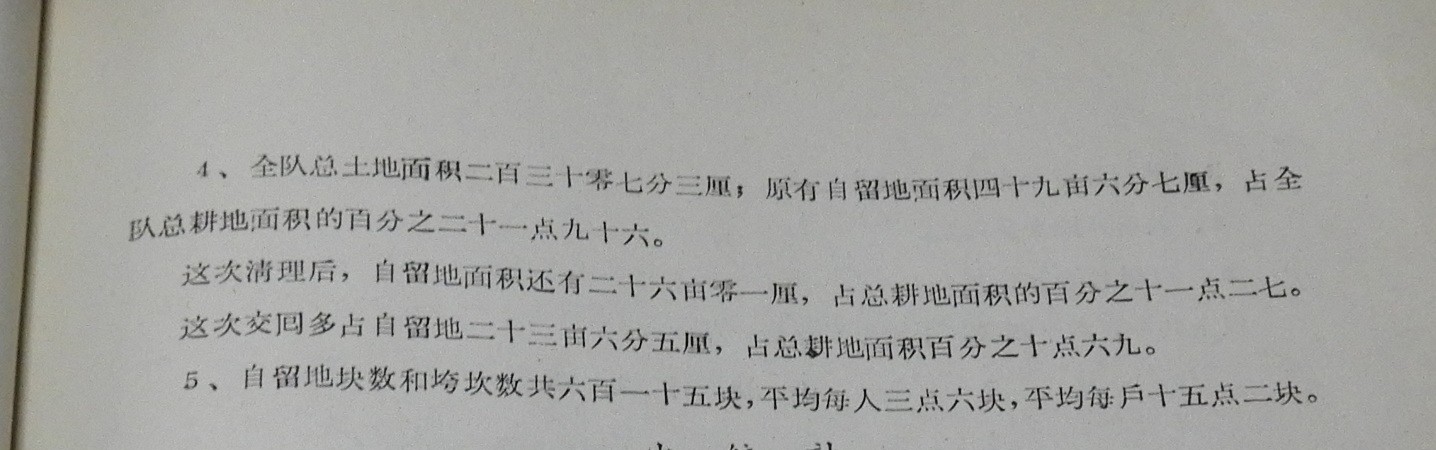 4、全队总土地面积二百三十零七分三厘；原有自留地面积四十九亩六分七厘，占全
队总耕地面积的百分之二十一点九十六。
这次清理后，自留地面积还有二十六亩零一厘，占总耕地面积的百分之十一点二七。
这次交回多占自留地二十三亩六分五厘，占总耕地面积百分之十点六九。
5、自留地块数和垮坎数共六百一十五块，平均每人三点六块，平均每戶十五点二块。